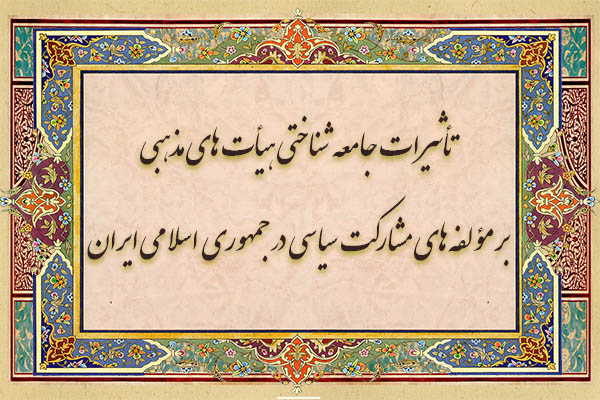 تأثیرات جامعه شناختی هیأت های مذهبی
بر مؤلفه های مشارکت سیاسی در جمهوری اسلامی ایران